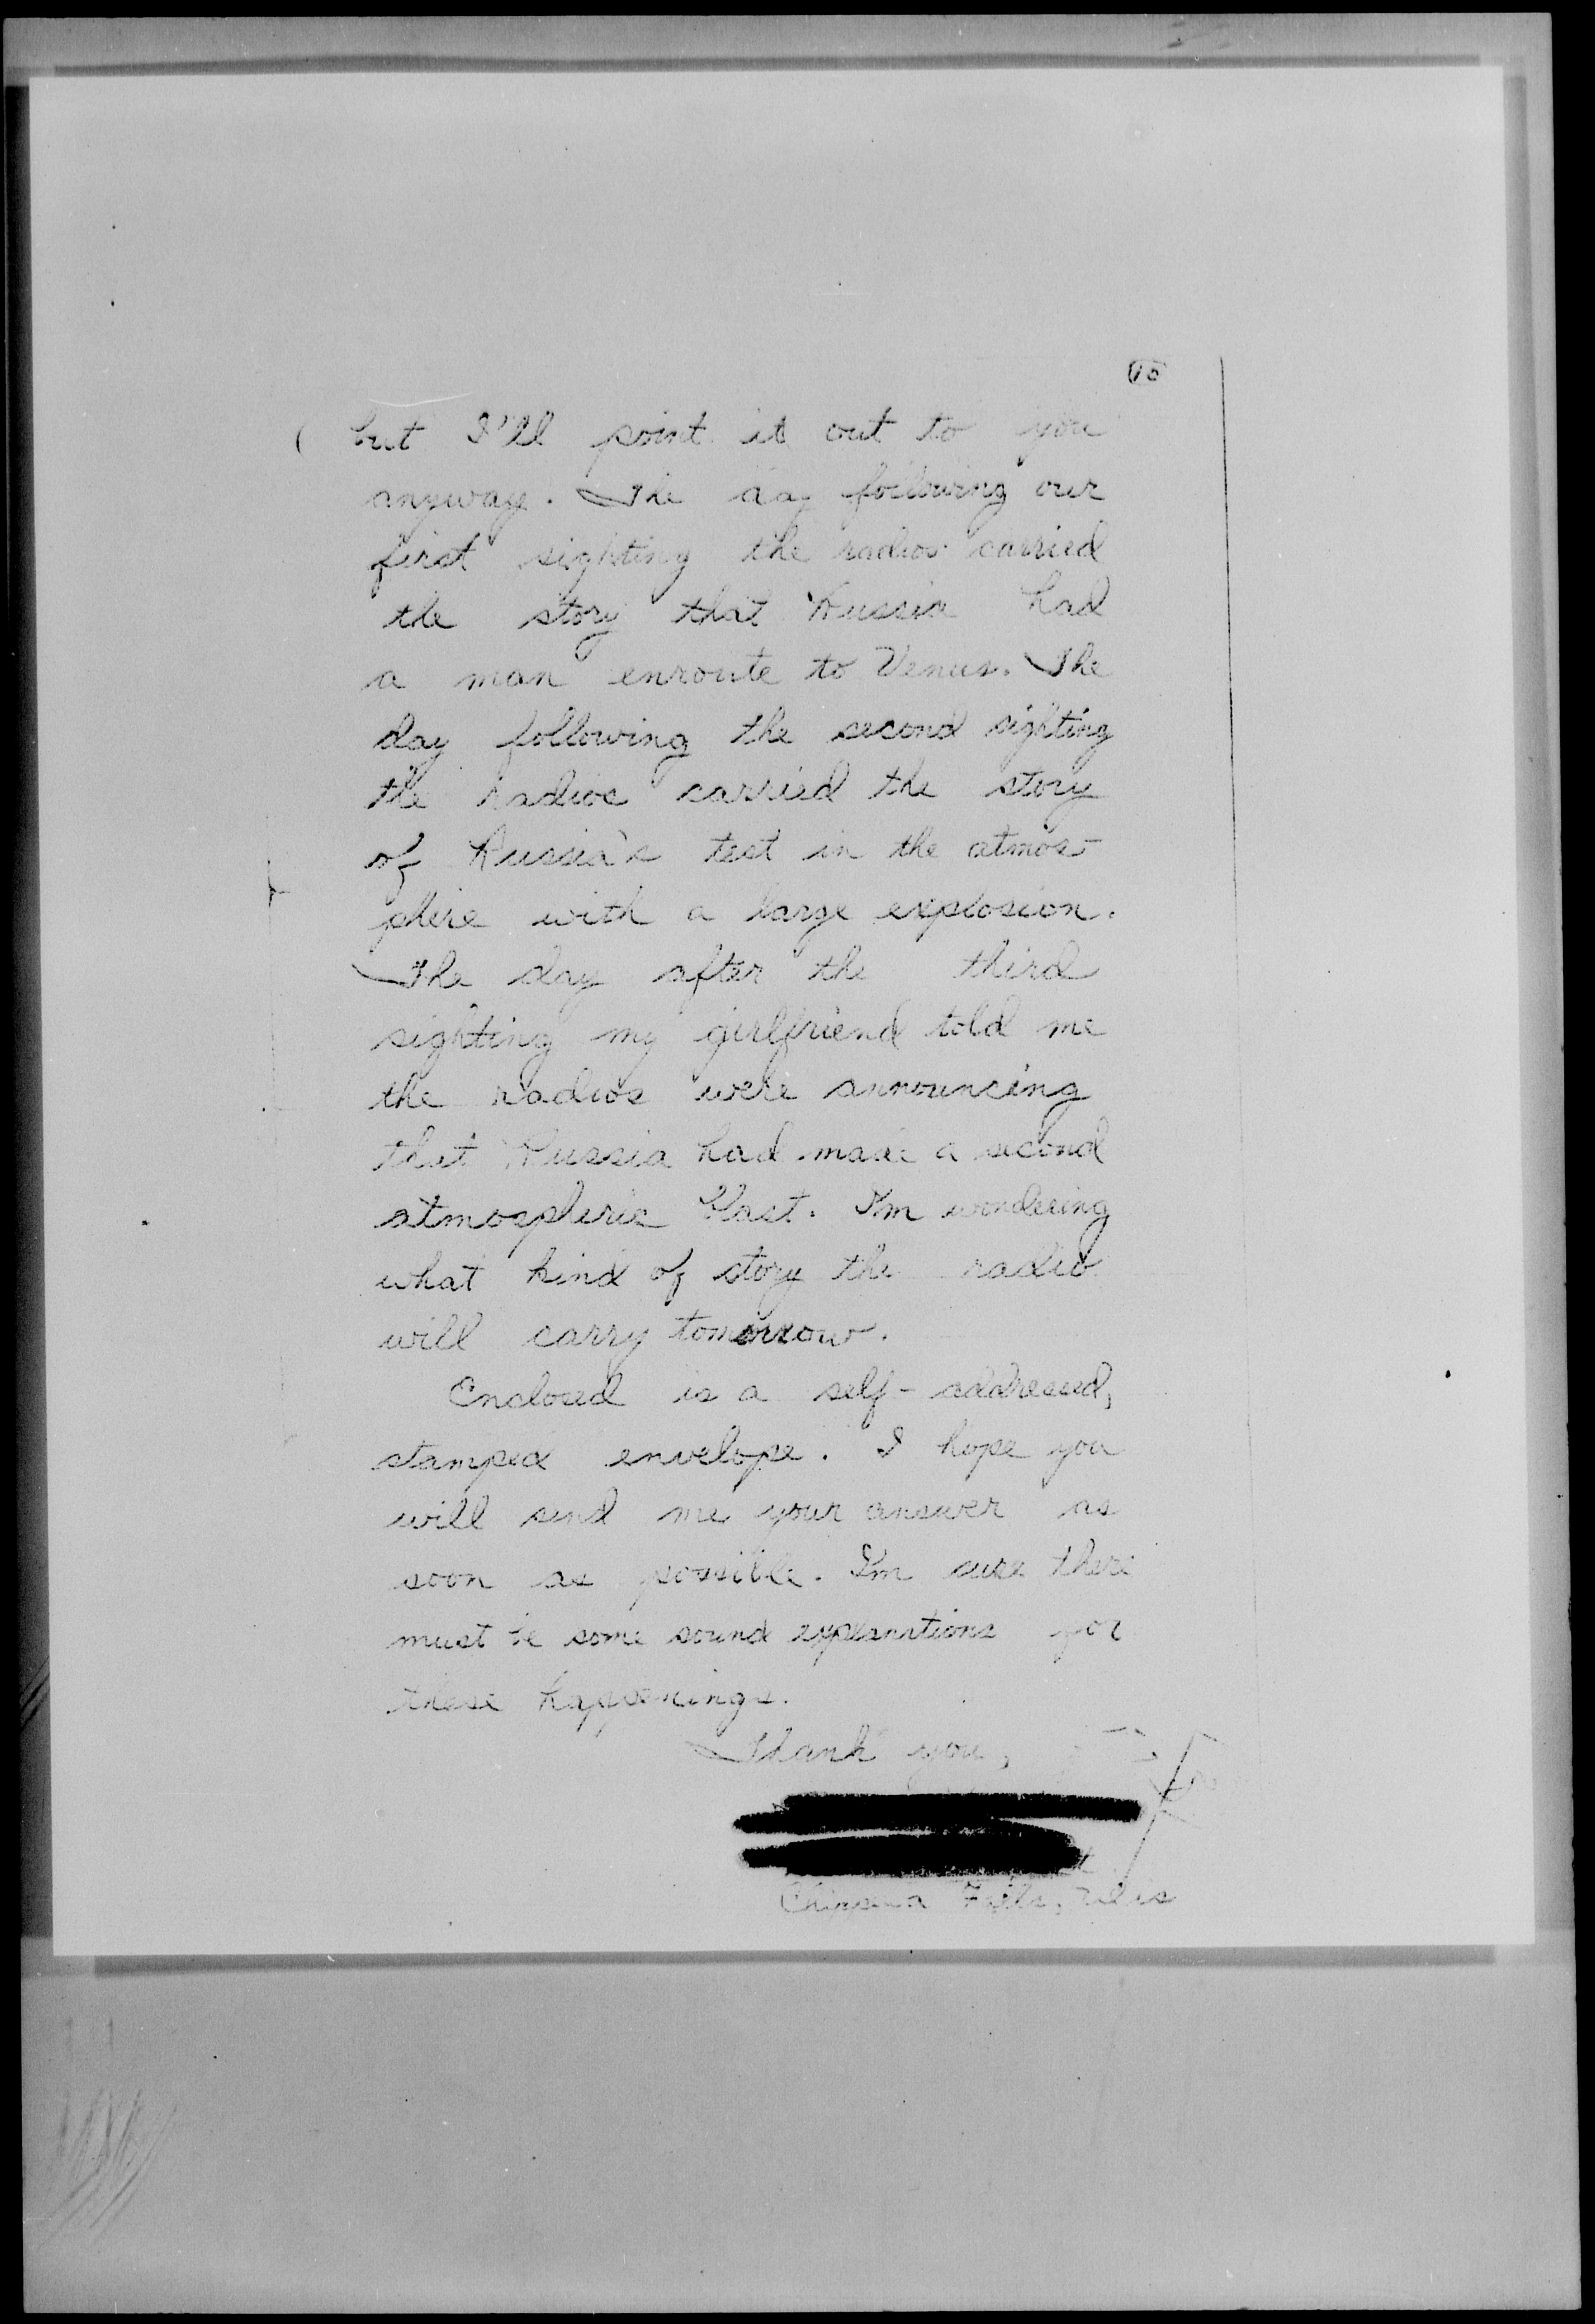 15
but I'll point it out to you
anyway. The day following our
first sighting the radios carried
the story that Russia had
a man enroute to Venus. The
day following the second sighting
the radios carried the story
of Russia's test in the atmos-
phere with a large explosion.
The day after the third
sighting my girlfriend told me
the radios were announcing
that Russia had made a second
atmospheric blast. I'm wondering
what kind of story the radio
will carry tomorrow.
Enclosed is a self-addressed,
stamped envelope. I hope you
will send me your answer as
soon as possible. I'm sure there
must be some sound explanations for
these happenings.
Thank you,
Chippewa Falls, Wis